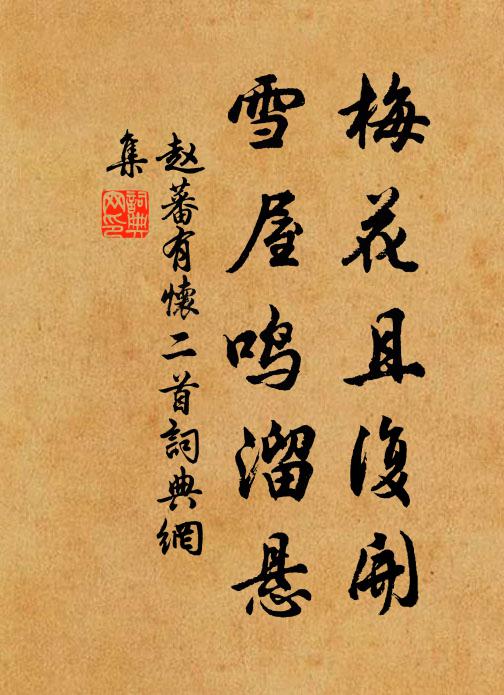 梅花且復開
雪屋鸣溜悬
赵蕃有懷二首詞典網
集
詞典网印